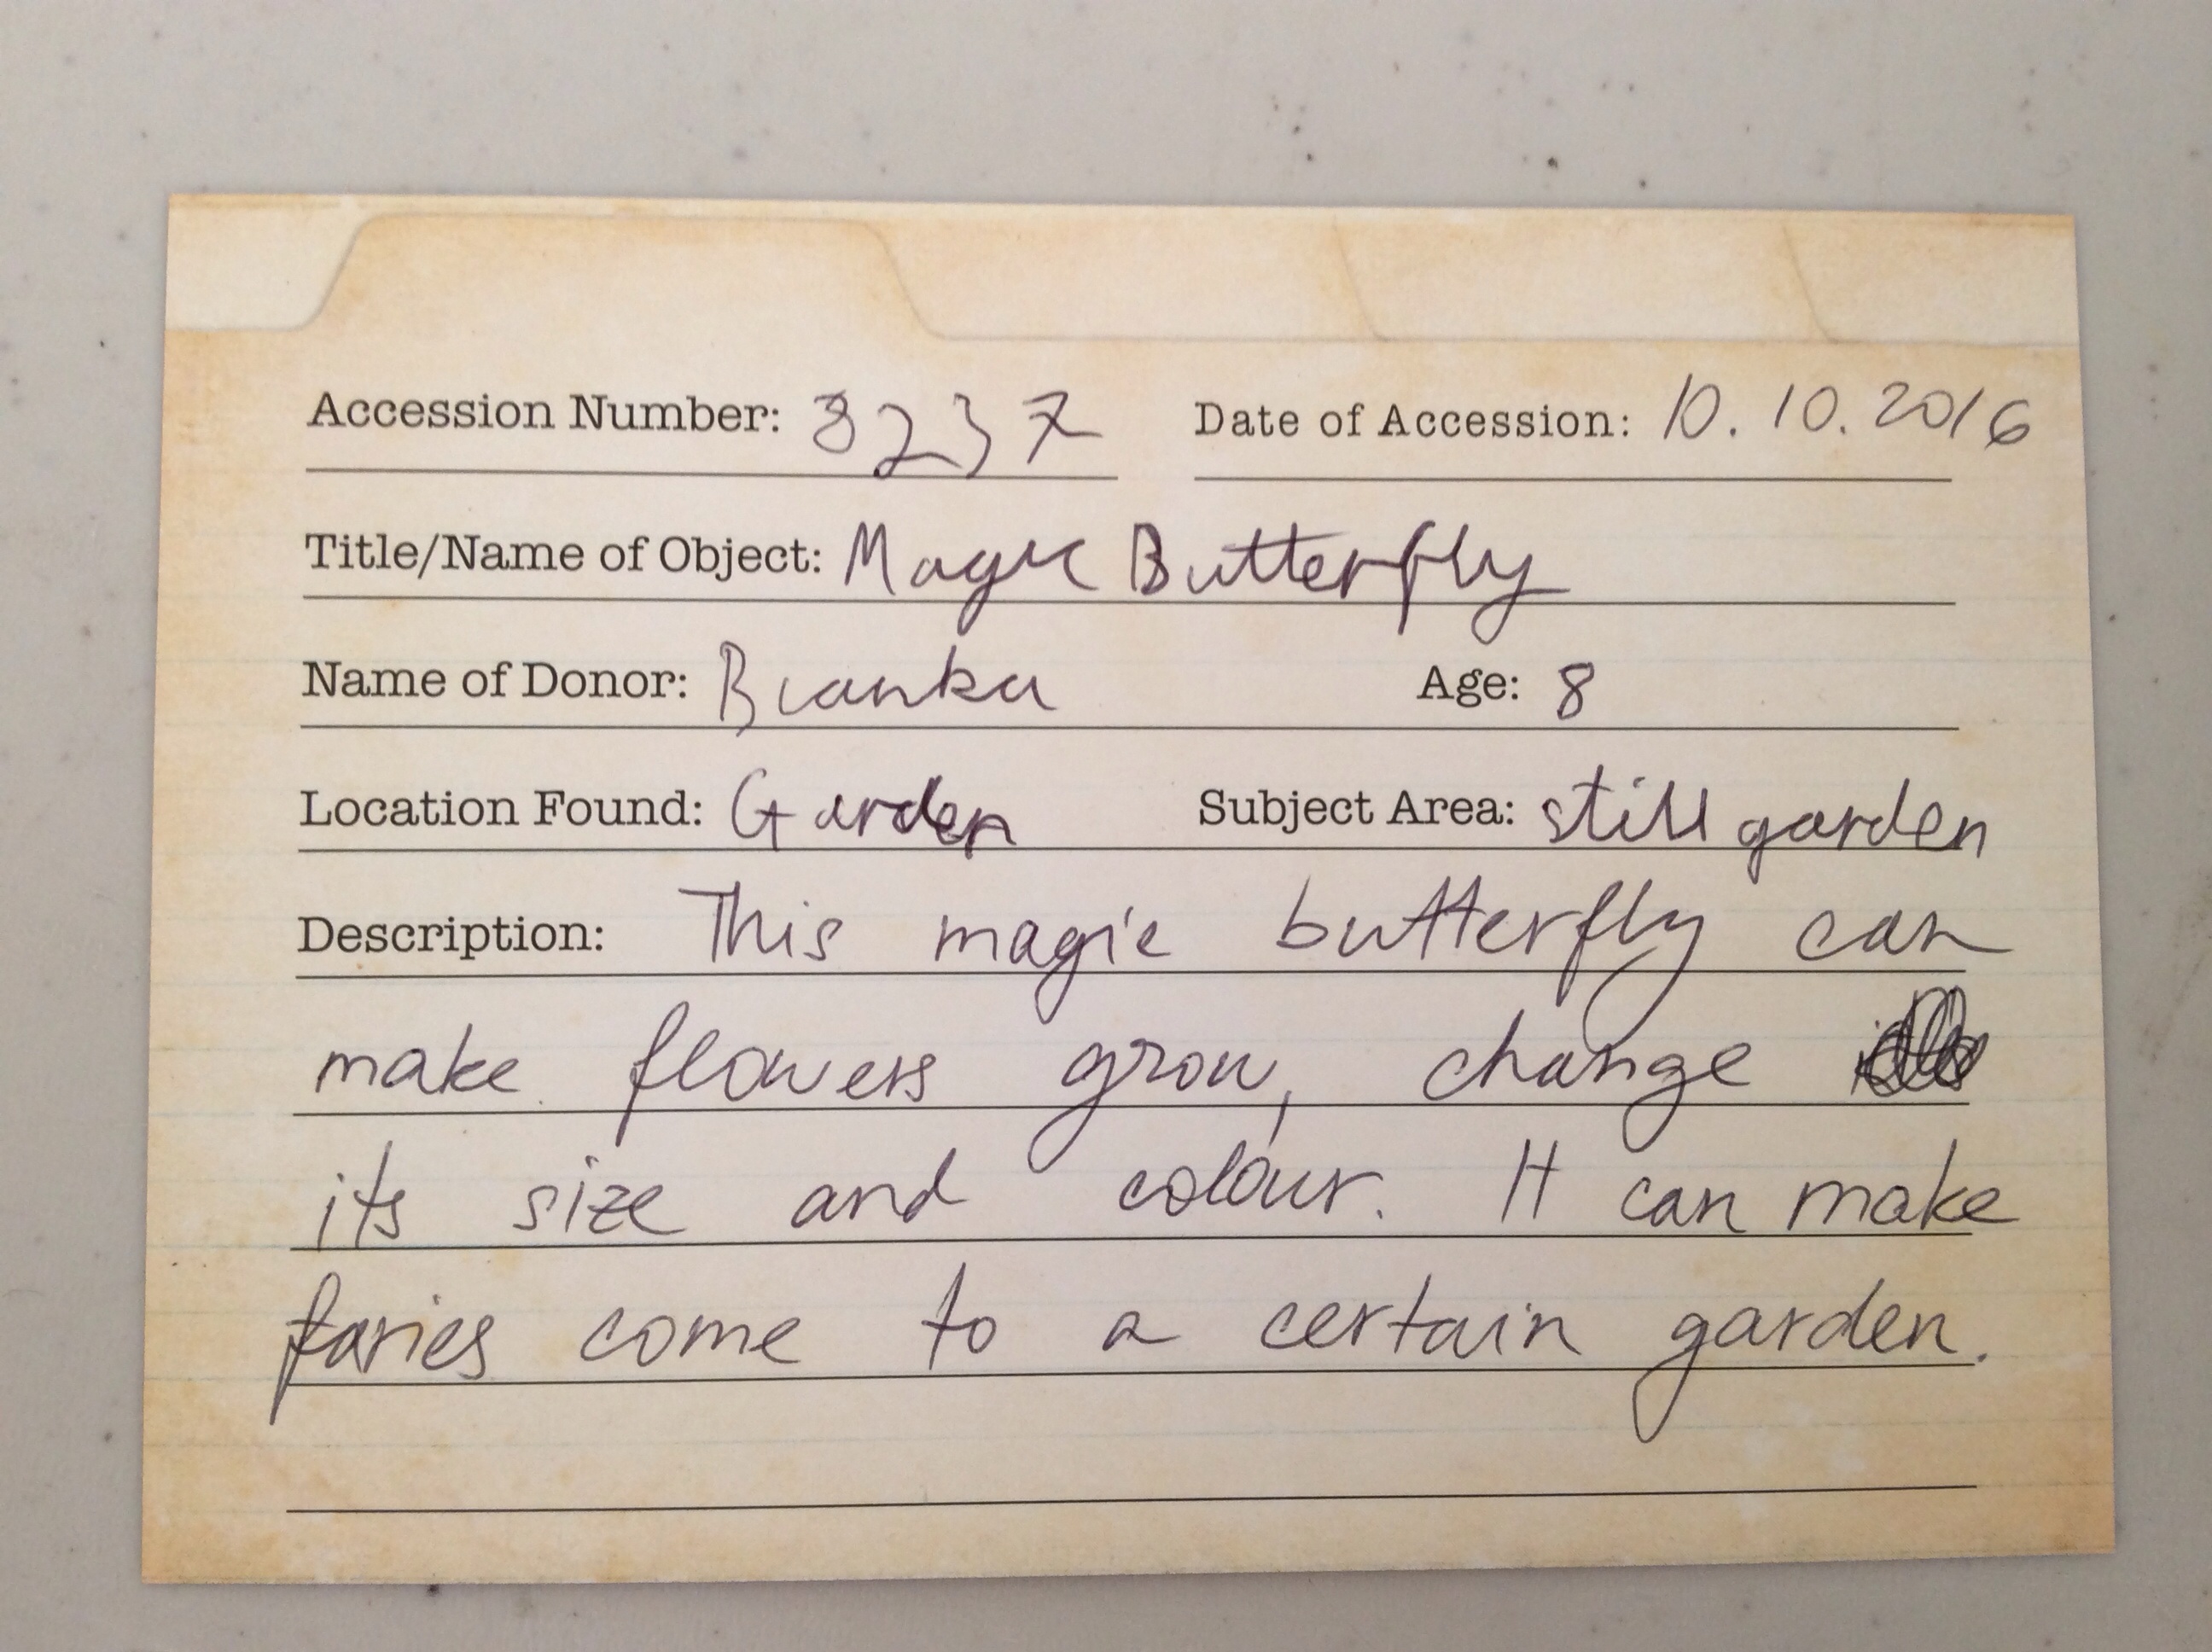 Accession Number: 3237 Date of Accession: 10.10.2016
Title/Name of Object: Magic Butterfly
Name of Donor: Bianka Age: 8
Location Found: Garden Subject Area: still garden
Description: This magic butterfly can
make flowers grow, change
its size and colour. It can make
faries come to a certain garden.